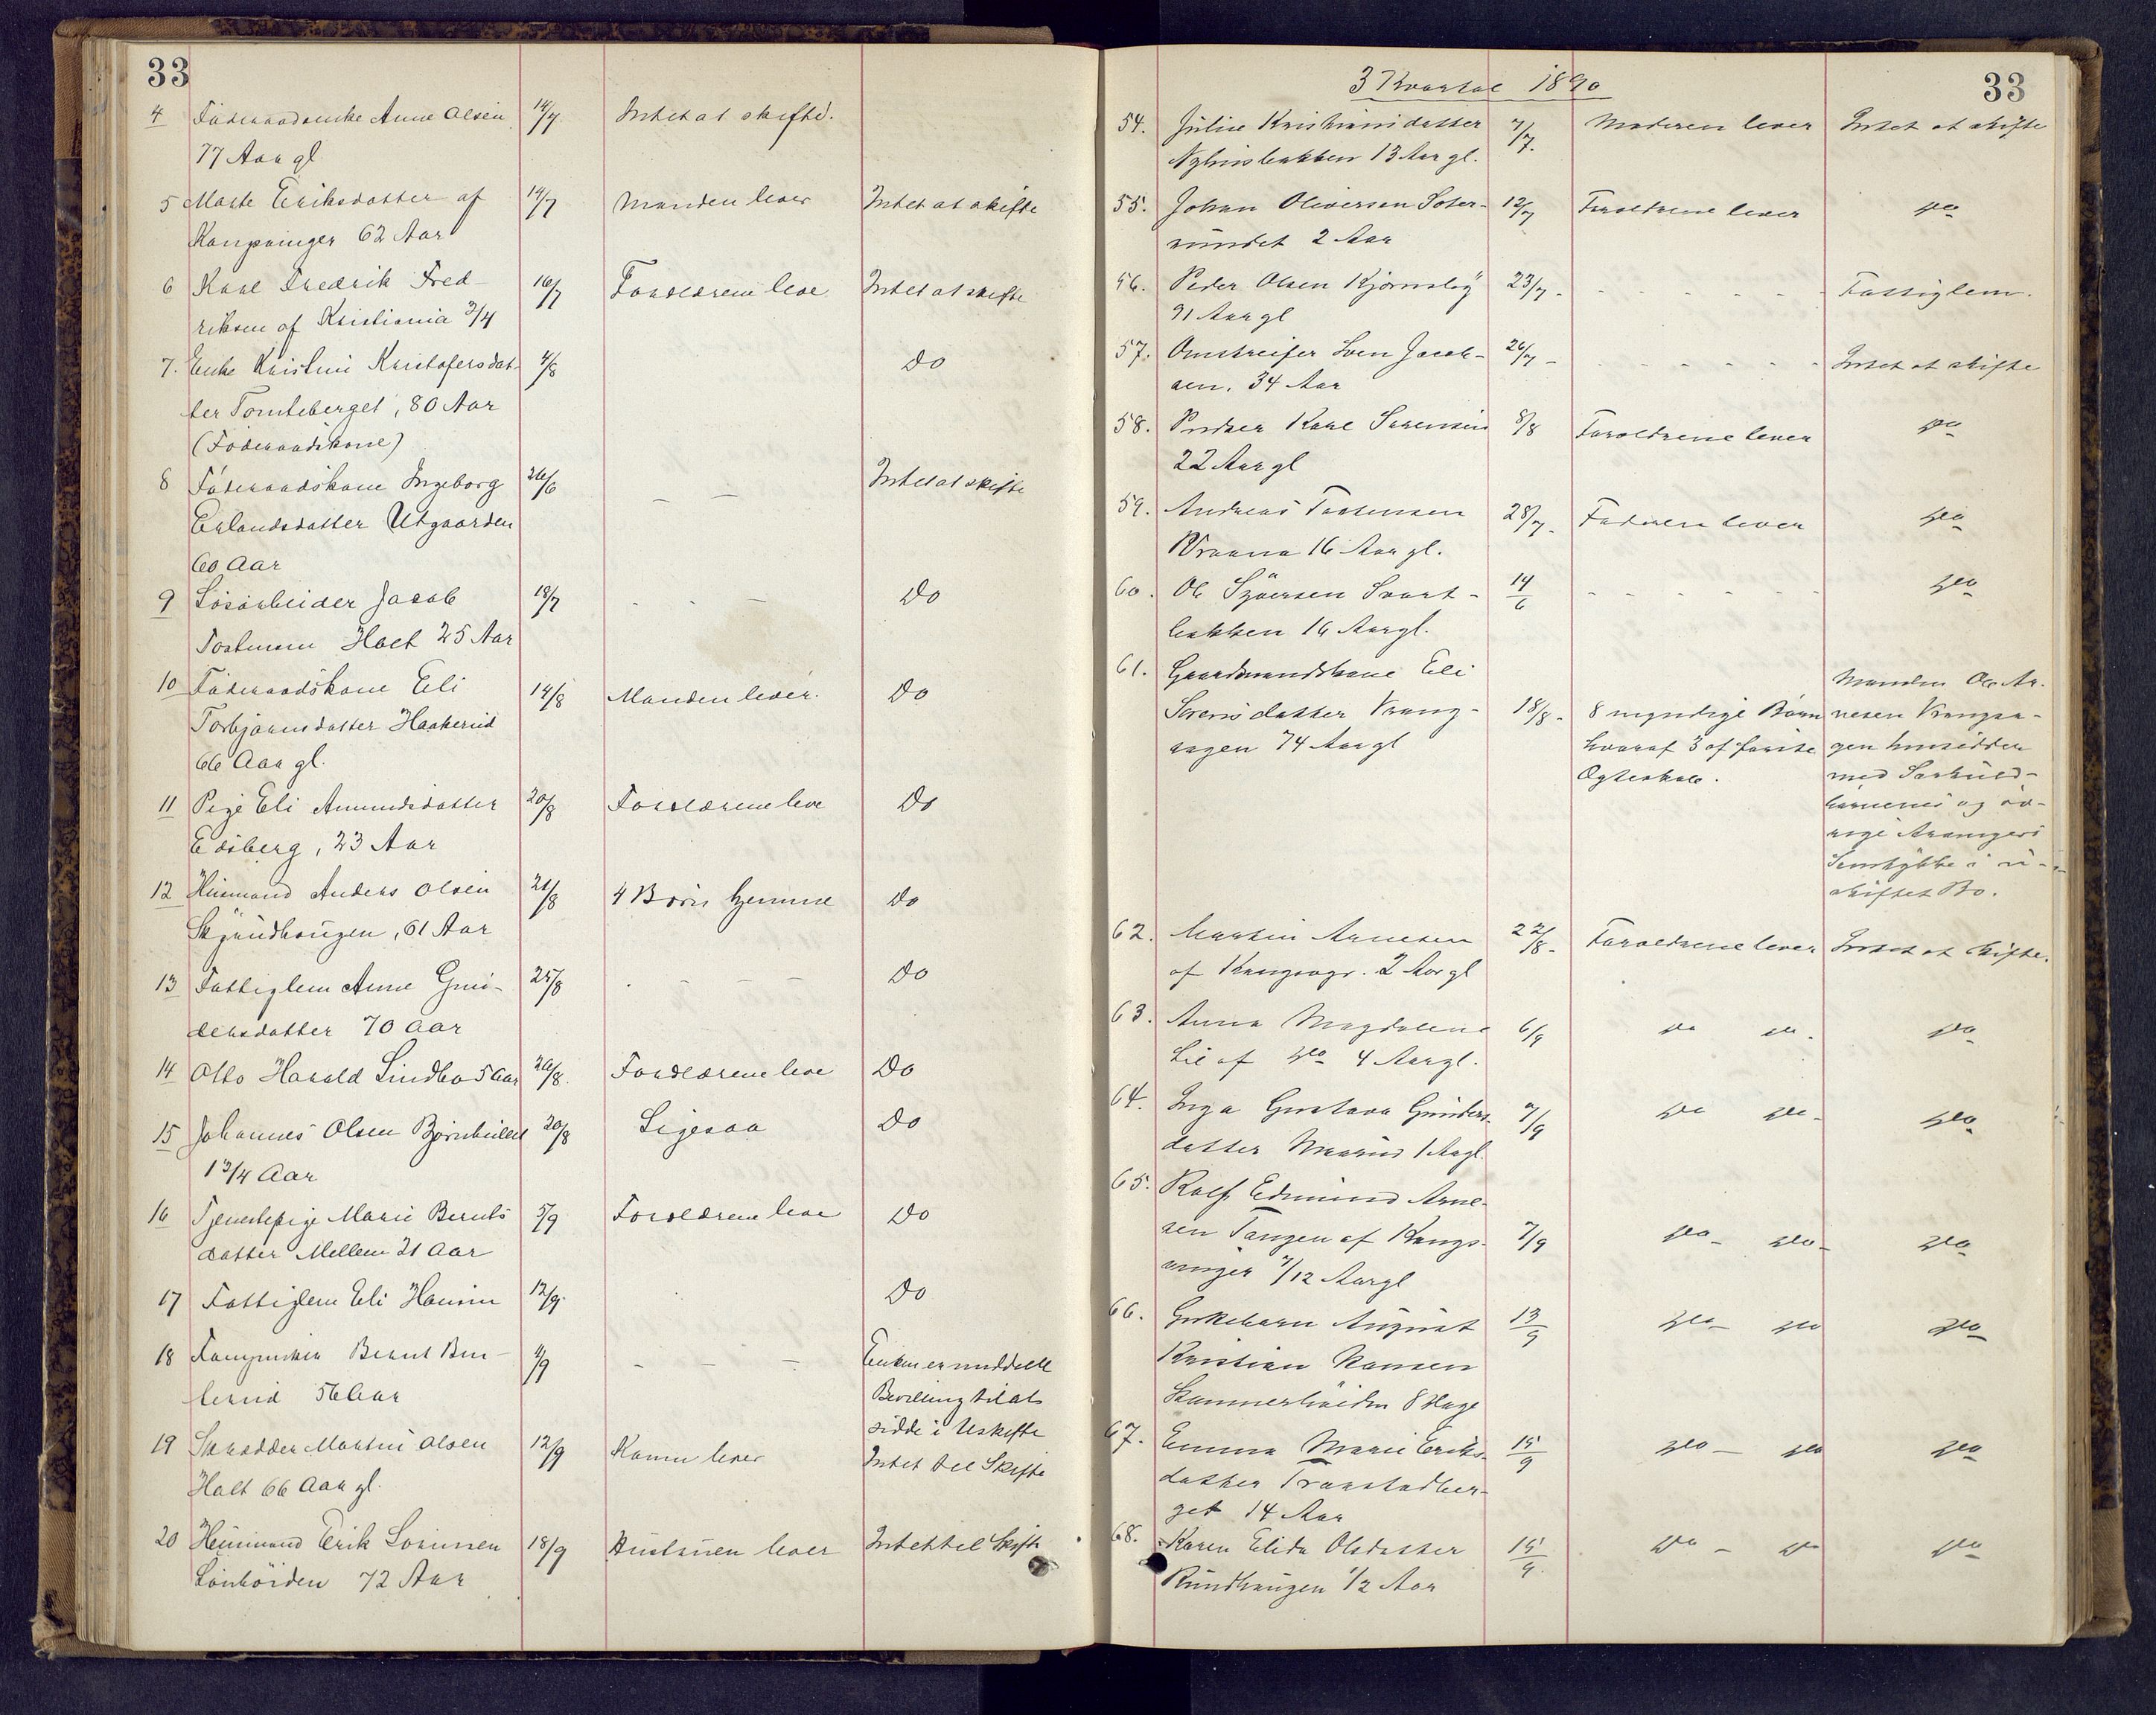 33
4 Föderaadsenke Anne Olsen 14/7 Intet at skifte.
77 Aar gl
5 Marte Eriksdatter af 14/7 Manden lever Intet at skifte
Kongsvinger 62 Aar
6 Karl Fredrik Fred- 16/7 Forældrene leve Intet at skifte
riksen af Kristiania 3/4
7. Enke Kristine Kristofersdat- 4/8 Do
ter Tomteberget, 80 Aar
(Föderaadskone)
8 Föderaadskone Ingeborg 26/6 — — Intet at skifte
Erlandsdatter Utgaarden
60 Aar
9 Lösarbeider Jacob 18/7 - - - Do
Tostensen Holt 25 Aar
10 Föderaadskone Eli 14/8 Manden lever. Do
Torbjørnsdatter Haakerud
66 Aar gl.
11 Pige Eli Amundsdatter 20/8 Forældrene leve Do
Edsberg, 23 Aar
12 Husmand Anders Olsen 21/8 4 Börn hjemme Do
Skjöndhaugen, 61 Aar
13 Fattiglem Anne Gun- 25/8 - - - Do
dersdatter 70 Aar
14 Otto Harald Lindbo 5 Aar 20/8. Forældrene leve Do
15 Johannes Olsen 20/8 Ligesaa Do
1 3/4 Aar
16 Tjenestepige Marie Bernts 5/9 Forældrene leve Do
datter Mellem 21 Aar
17 Fattiglem Eli Hansen 12/9. Do
18 Bernt 4/9 — — — Enken er meddelt
56 Aar Bevilling til at
sidde i Uskifte
19 Skrædder Martin Olsen 12/9 Konen lever Intet til Skifte
Holt 66 Aar gl.
20 Husmand Erik Sørensen 18/9 Hustruen lever Intet til Skifte
72 Aar
33
3 Kvartal 1890
54. Juline Kristiansdatter 7/7. Moderen lever Intet at skifte
13 Aar gl.
55. Johan Oliversen Soter- 12/7 Forældrene lever do
rundet 2 Aar
56. Peder Olsen Kjørnsby 23/7 - - - - - - Fattiglem.
91 Aar gl
57. Omstreifer Sven Jacob- 26/7 - - - - - - Intet at skifte
sen. 34 Aar
58. Karl Sørensen 8/8 Forældrene lever do
22 Aar gl
59. Andreas Tostensen 28/7. Faderen lever do
Vraana 16 Aar gl.
60. Ole Syversen Svart- 14/6 - - - - - - do
bakken 16 Aar gl.
61. Gaardmandskone Eli
Sørensdatter Vrang- 18/8. 8 myndige Børn
sagen 74 Aar gl hvoraf 3 af første
Ægteskab.
Manden Ole Ar-
nesen Vrangsa-
gen hensidder
med Særkuld-
børnenes og öv-
rige Arvingers
Samtykke i u-
skiftet Bo.
62. Martin Arnesen 22/8. Forældrene lever Intet at skifte.
af Kongsvgr. 2 Aar gl
63. Anna Magdalene 6/9 do do. do
Lie af do 4 Aar gl.
64. Inga Gustava Gunders- 7/9 do do do
datter 1 Aar gl.
65. Rolf Edmund Arne-
sen Tangen af Kongs- 7/9 do do do
vinger 7/12 Aar gl
66. Gutebarn August 13/9 do do do
Kristian Hansen
8 Dage
67. Emma Marie Eriks- 15/9 do - do do
datter Traastadber-
get 14 Aar
68. Karen Elida Olsdatter 15/9. do - do do
Rundhaugen 1/2 Aar